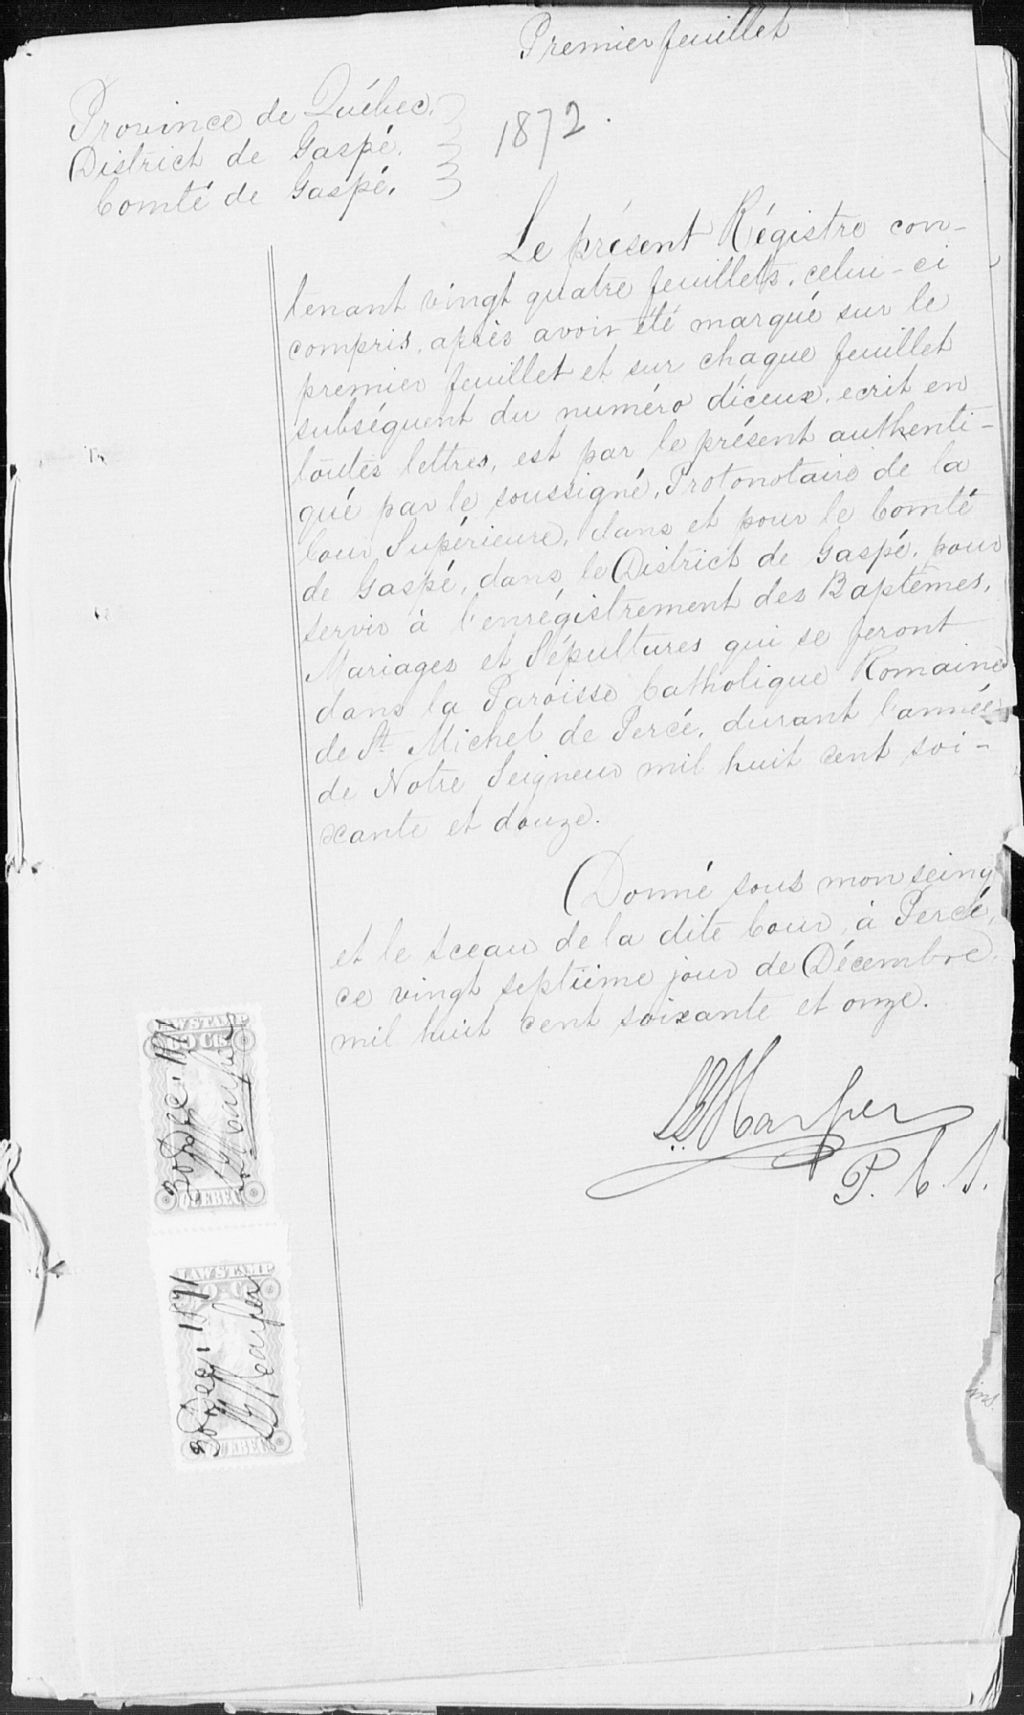 Premier feuillet
Province de Québec.
District de Gaspé.
Comté de Gaspé.
1872.
Le présent Régistre con-
tenant vingt quatre feuillets, celui-ci
compris, après avoir été marqué sur le
premier feuillet et sur chaque feuillet
subséquent du numéro diceux, ecrit en
toutes lettres, est par le présent authenti-
qué par le soussigné, Protonotaire de la
Cour Supérieure, dans et pour le Comté
de Gaspé, dans le District de Gaspé, pour
servir à l'enrégistrement des Baptêmes,
Mariages et Sépultures qui se feront
dans la Paroisse Catholique Romaine
de St Michel de Percé, durant l'année
de Notre Seigneur mil huit cent soi-
xante et douze.
Donné sous mon seing
et le sceau de la dite Cour, à Percé,
ce vingt septiime jour de Décembre
mil huit cent soixante et onze.
Harper
P. C. S.
LAW STAMP
30 Dec. 1871
Harper
QUEBEC
LAW STAMP
30 Dec. 1871
Harper
QUEBEC
ins.